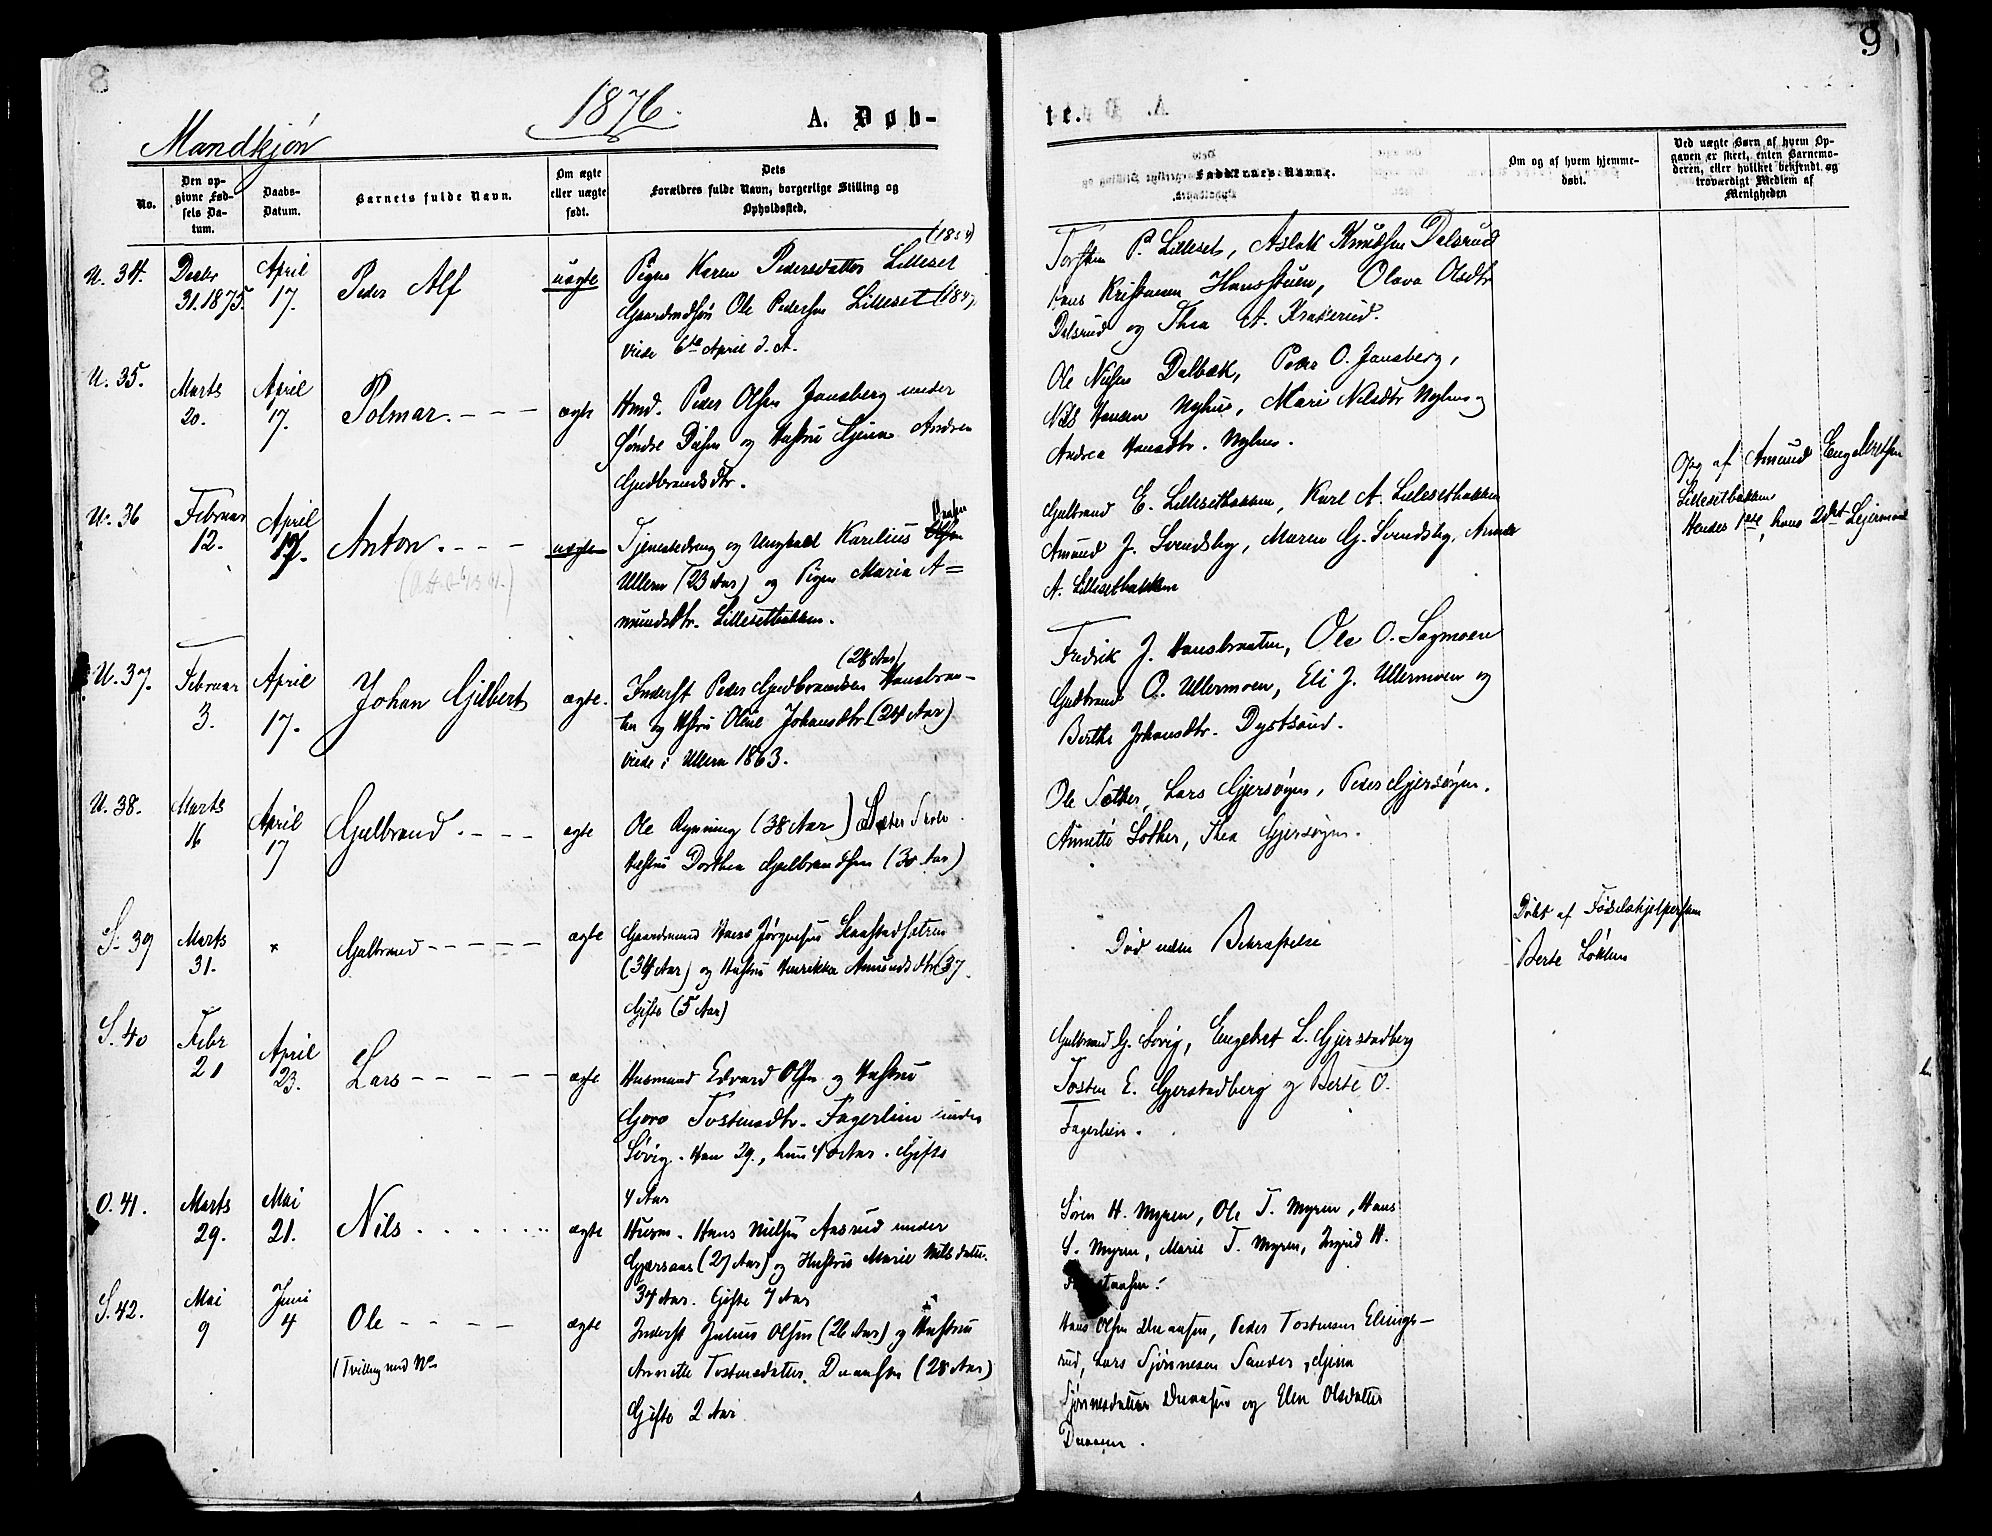 8
1876.
A. Døb-
Mandkjøn
No.
Den op-
givne Fød-
sels Da-
tum.
Daabs-
Datum.
Barnets fulde Navn.
Om ægte
eller uægte
født.
Dets
Forældres fulde Navn, borgerlige Stilling og
Opholdssted.
U. 34.
Decbr
31. 1875.
April
17.
Peder Alf
uægte
Pigen Karen Pedersdatter Lilleset
Gaardmdsøn Ole Pedersen Lilleset
viede 6te April d. A.
U. 35.
Marts
20.
April
17.
Polmar. - - -
ægte
Hmd. Peder Olsen Jonsberg under
søndre Diesen og Hustru Andrea
Gudbrandsdtr.
U. 36
Februar
12.
April
17.
Anton. - - -
uægte
Tjenestedreng og Ungkarl Karilius
Ullern (23 Aar) og Pigen Maria A=
mundsdtr. Lillesetbakken.
U. 37.
Februar
3.
April
17.
Johan Gilbert
ægte.
(28 Aar)
Inderst Peder Gudbrandsen Hansbraa-
ten og Hstru Oline Johansdtr (24 Aar)
viede i Ullern 1863.
U. 38.
Marts
16
April
17
Gulbrand. - - -
ægte
Ole Rynning (38 Aar)
Hustru Dorthea Gulbrandsen (30 Aar)
S. 39
Marts
31.
Gulbrand - - - - -
ægte
Gaardmand Hans Jørgensen
(34 Aar) og Hustru Henrikka Amundsdtr (37.
Gifte (5 Aar)
S. 40
Febr
21
April
23.
Lars - - - - -
ægte
Husmand Edvard Olsen og Hustru
Goro Tostensdtr. Fagerlien under
Søvig. Han 29., hun 40 Aar. Gifte
4 Aar
O. 41.
Marts
29.
Mai
21.
Nils . . . . . . .
ægte
Husm. Hans Nielsen Aasrud under
Gjersaas (27 Aar) og Hustru Marie Nilsdatter.
34 Aar. Gifte 7 Aar
S. 42.
Mai
9
Juni
4
Ole - - - - -
(Tvilling med No
ægte
Inderst Julius Olsen (26 Aar) og Hustru
Annette Tostensdatter (28 Aar)
Gifte 2 Aar
9
te.
Faddernes Navne.
Om og af hvem hjemme-
døbt.
Ved uægte Børn af hvem Op-
gaven er skeet, enten Barnemo-
deren, eller hvilket bekjendt og
troværdigt Medlem af
Menigheden
Torsten P. Lilleset, Aslak Knudsen Dalsrud
Hans Kristiansen Hansstuen, Olava Olsdtr
Dalsrud og Thea A. Krakerud.
Ole Nilsen Dalbæk, Peder O. Jonsberg,
Nils Hansen Nyhus, Mari Nilsdtr Nyhus og
Andrea Hansdtr. Nyhus.
Gulbrand E. Lillesetbakken, Karl A. Lillesetbakken
Amund J. Svendsby, Maren G. Svendsby,
A. Lillesetbakken
Opg af Amund Engebretsen
Lillesetbakken
Hendes 1ste, hans 2det Lejermaal
Fredrik J. Hansbraaten, Ole O. Sagmoen
Gudbrand O. Ullermoen, Eli J. Ullermoen og
Berthe Johansdtr. Dystsand.
Ole Sæther, Lars Gjersøyen, Peder Gjersøyen.
Annette Sæther, Thea Gjersøyen.
Død uden Bekræftelse
Døbt af Fødselshjelpersken
Berte Løkken
Gulbrand G. Søvig, Engebret L. Gjerstadberg
Tosten E. Gjerstadberg og Berte O.
Fagerlien.
Søren H. Myren, Ole T. Myren, Hans
S. Myren, Marie T. Myren, Ingrid H.
Hans Olsen Peder Tostensen Elings-
rud, Lars Sjønnesen Sander,
Sjønnesdatter og Elen Olsdatter